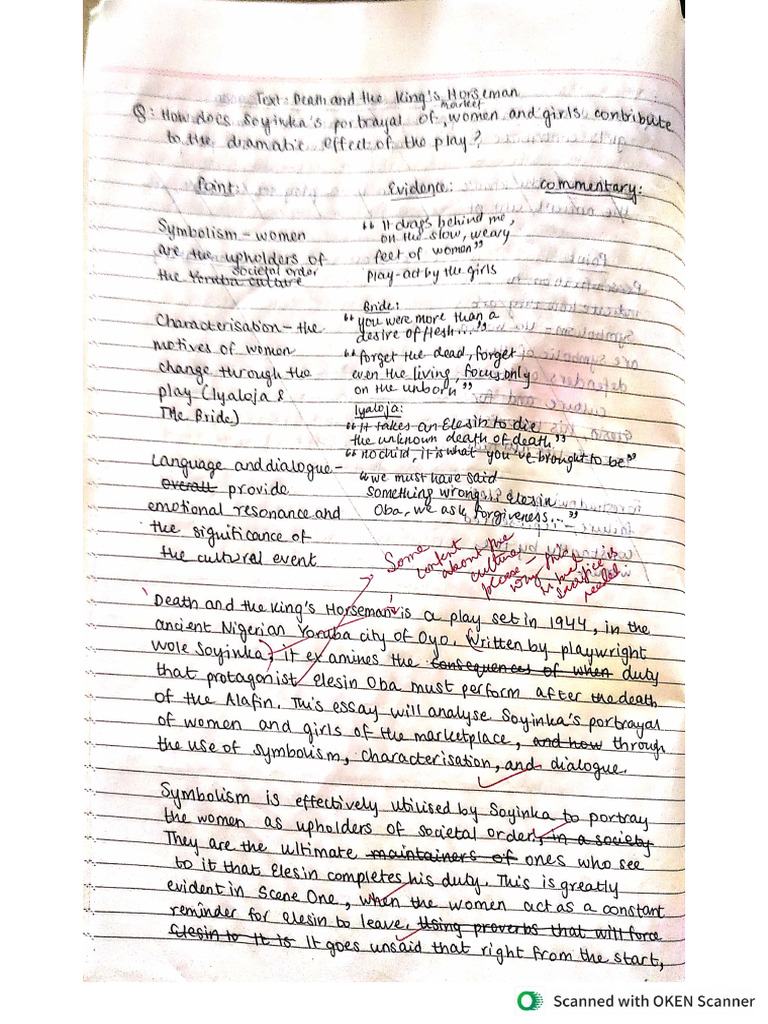 Text: Death and the King's Horseman
Q: How does Soyinka's portrayal of market women and girls contribute
to the dramatic effect of the play?
Point: Evidence: Commentary:
Symbolism - women
are the upholders of
the Yoruba culture societal order
"It drags behind me,
on the slow, weary
feet of women"
Play-act by the girls
Characterisation - the
motives of women
change through the
play (Iyaloja &
The Bride)
Bride:
"you were more than a
desire of flesh..."
"forget the dead, forget
even the living, focus only
on the unborn"
Iyaloja:
"It takes an Elesin to die
the unknown death of death"
"no child, it is what you've brought to be"
Language and dialogue -
overall provide
emotional resonance and
the significance of
the cultural event
"we must have said
something wrong. Elesin
Oba, we ask forgiveness..."
Some
content
about the
culture
please - why this
is sacrifice
needed
Death and the King's Horseman is a play set in 1944, in the
ancient Nigerian Yoruba city of Oyo. Written by playwright
Wole Soyinka, it examines the consequences of when duty
that protagonist Elesin Oba must perform after the death
of the Alafin. This essay will analyse Soyinka's portrayal
of women and girls of the marketplace, and how through
the use of symbolism, characterisation, and dialogue.
Symbolism is effectively utilised by Soyinka to portray
the women as upholders of societal order, in a society
They are the ultimate maintainers of ones who see
to it that Elesin completes his duty. This is greatly
evident in Scene One, when the women act as a constant
reminder for Elesin to leave. Using proverbs that will force
Elesin to It is It goes unsaid that right from the start,
Scanned with OKEN Scanner